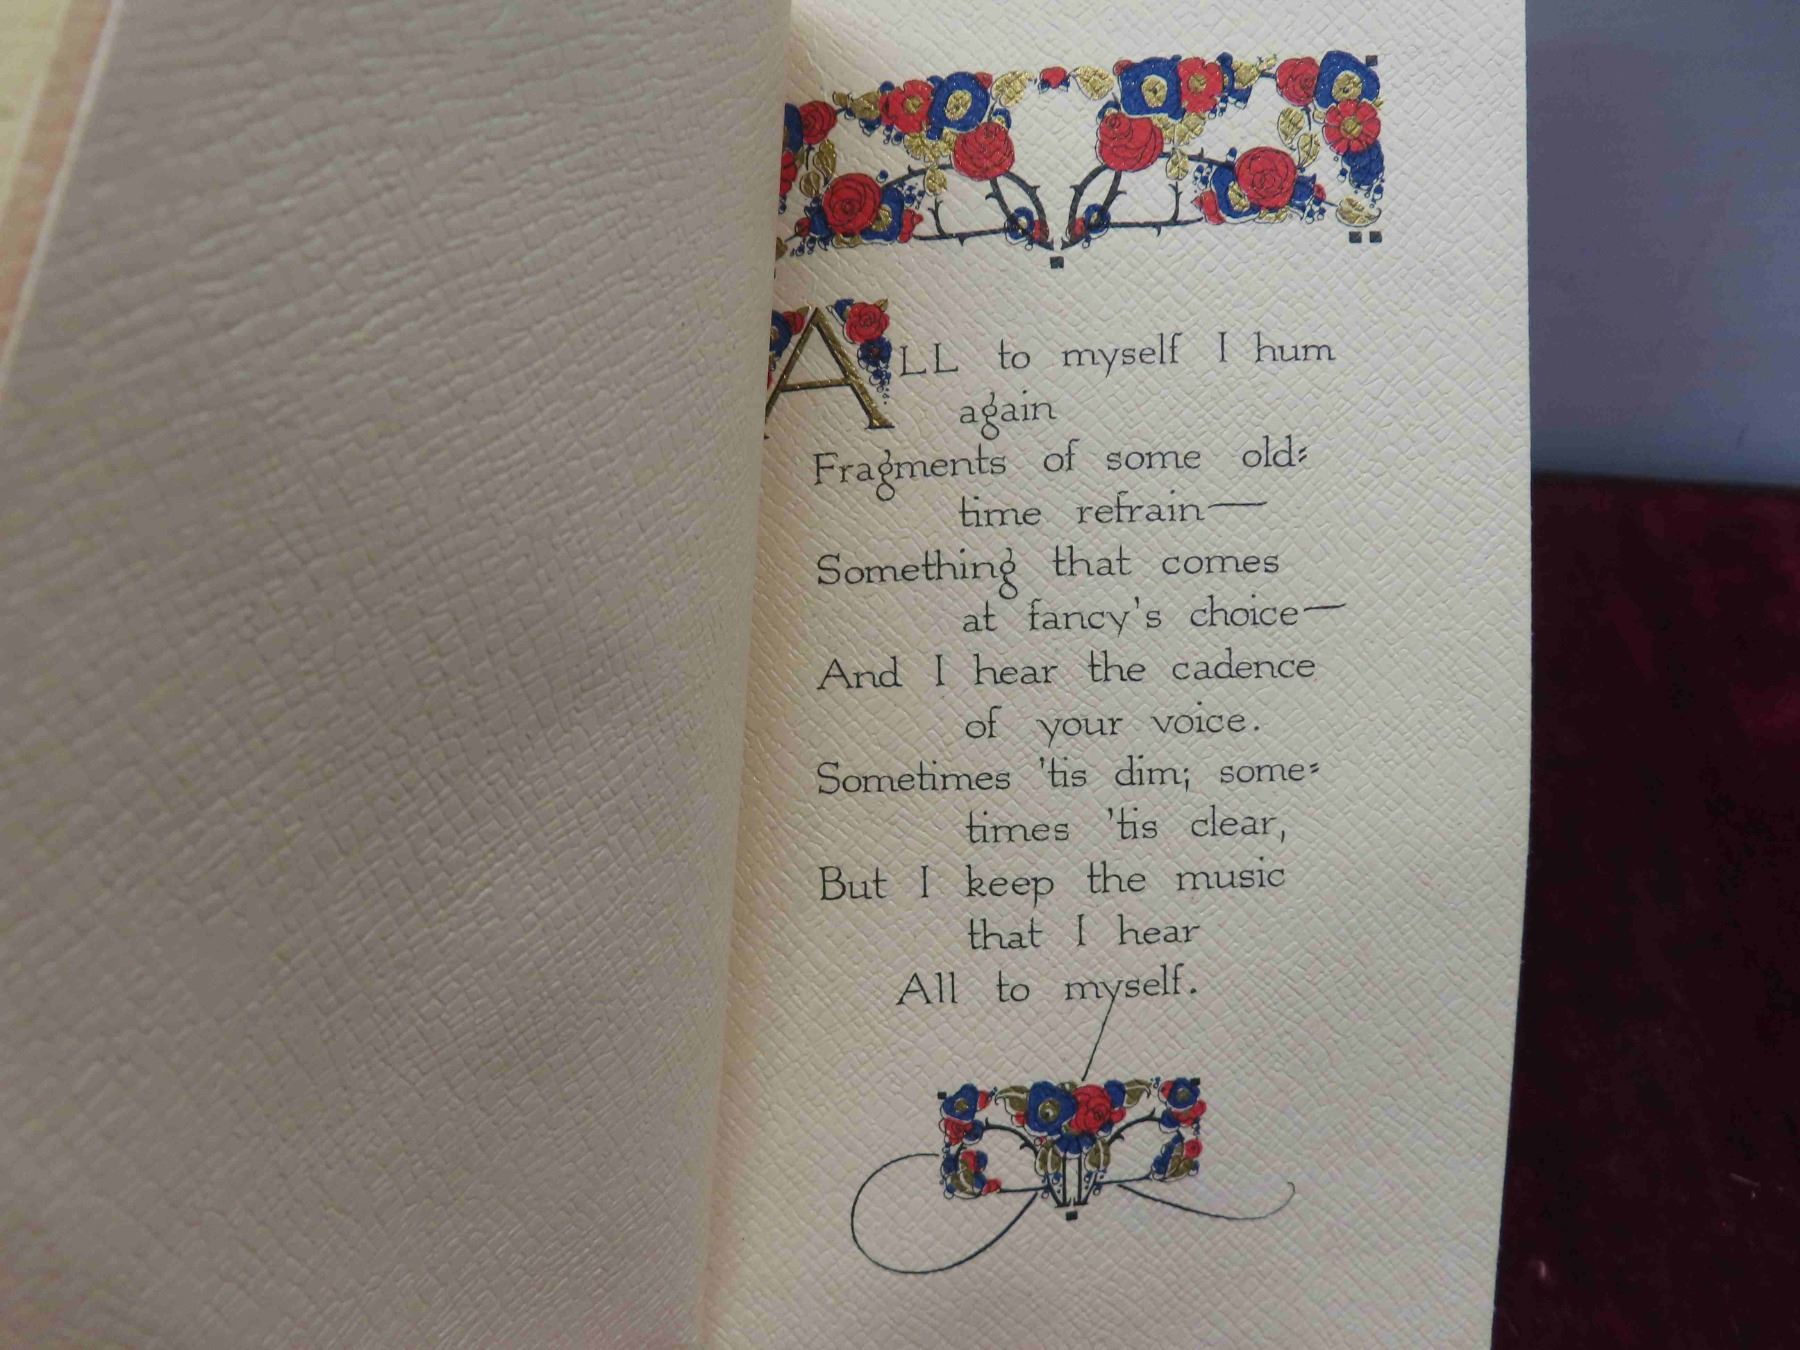 ALL to myself I hum
again
Fragments of some old-
time refrain—
Something that comes
at fancy's choice—
And I hear the cadence
of your voice.
Sometimes 'tis dim; some-
times 'tis clear,
But I keep the music
that I hear
All to myself.